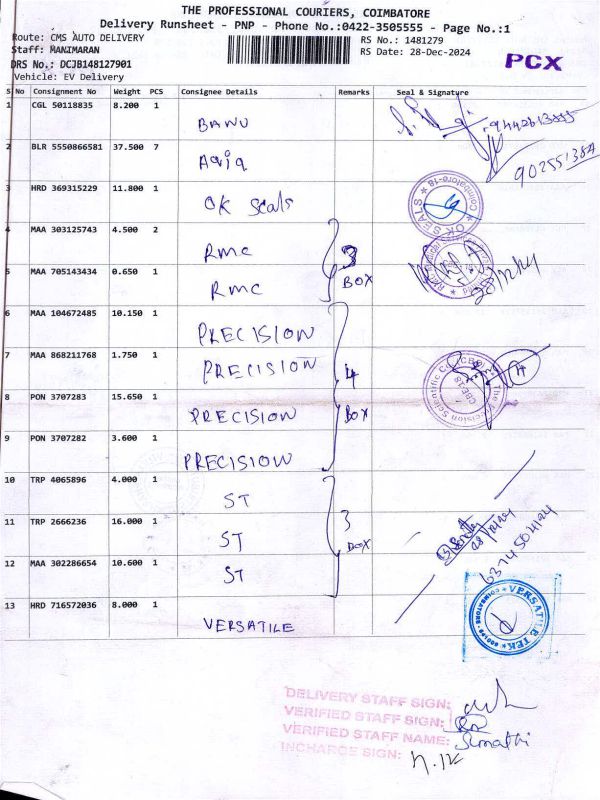 THE PROFESSIONAL COURIERS, COIMBATORE
Delivery Runsheet - PNP - Phone No.:0422-3505555 - Page No.:1
Route: CMS AUTO DELIVERY
RS No.: 1481279
Staff: MANIMARAN
RS Date: 28-Dec-2024
DRS No.: DCJB148127901
PCX
Vehicle: EV Delivery
S No Consignment No Weight PCS Consignee Details Remarks Seal & Signature
1 CGL 50118835 8.200 1 BANU
2 BLR 5550866581 37.500 7 Aqiq
3 HRD 369315229 11.800 1 OK Seals
OK SEALS Coimbatore-18
4 MAA 303125743 4.500 2 RMC
3 BOX
28/12/24
5 MAA 705143434 0.650 1 RMC
6 MAA 104672485 10.150 1 PRECISION
7 MAA 868211768 1.750 1 PRECISION
4 BOX
The Precision Scientific Co. (CBE) CBE18
8 PON 3707283 15.650 1 PRECISION
9 PON 3707282 3.600 1 PRECISION
10 TRP 4065896 4.000 1 ST
11 TRP 2666236 16.000 1 ST
3 BOX
28/12/24
12 MAA 302286654 10.600 1 ST
13 HRD 716572036 8.000 1 VERSATILE
VERSATILE TEK COIMBATORE
DELIVERY STAFF SIGN:
VERIFIED STAFF SIGN:
VERIFIED STAFF NAME: Sumathi
INCHARGE SIGN: